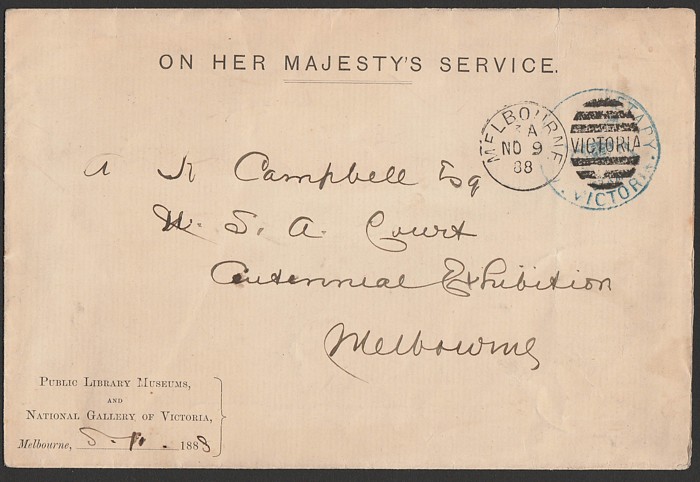 ON HER MAJESTY'S SERVICE.
MELBOURNE
3 A
NO 9
88
VICTORIA
VICTORIA
A K Campbell Esq
U. S. A. Court
Centennial Exhibition
Melbourne
PUBLIC LIBRARY MUSEUMS,
AND
NATIONAL GALLERY OF VICTORIA,
Melbourne, 8. 11. 1888